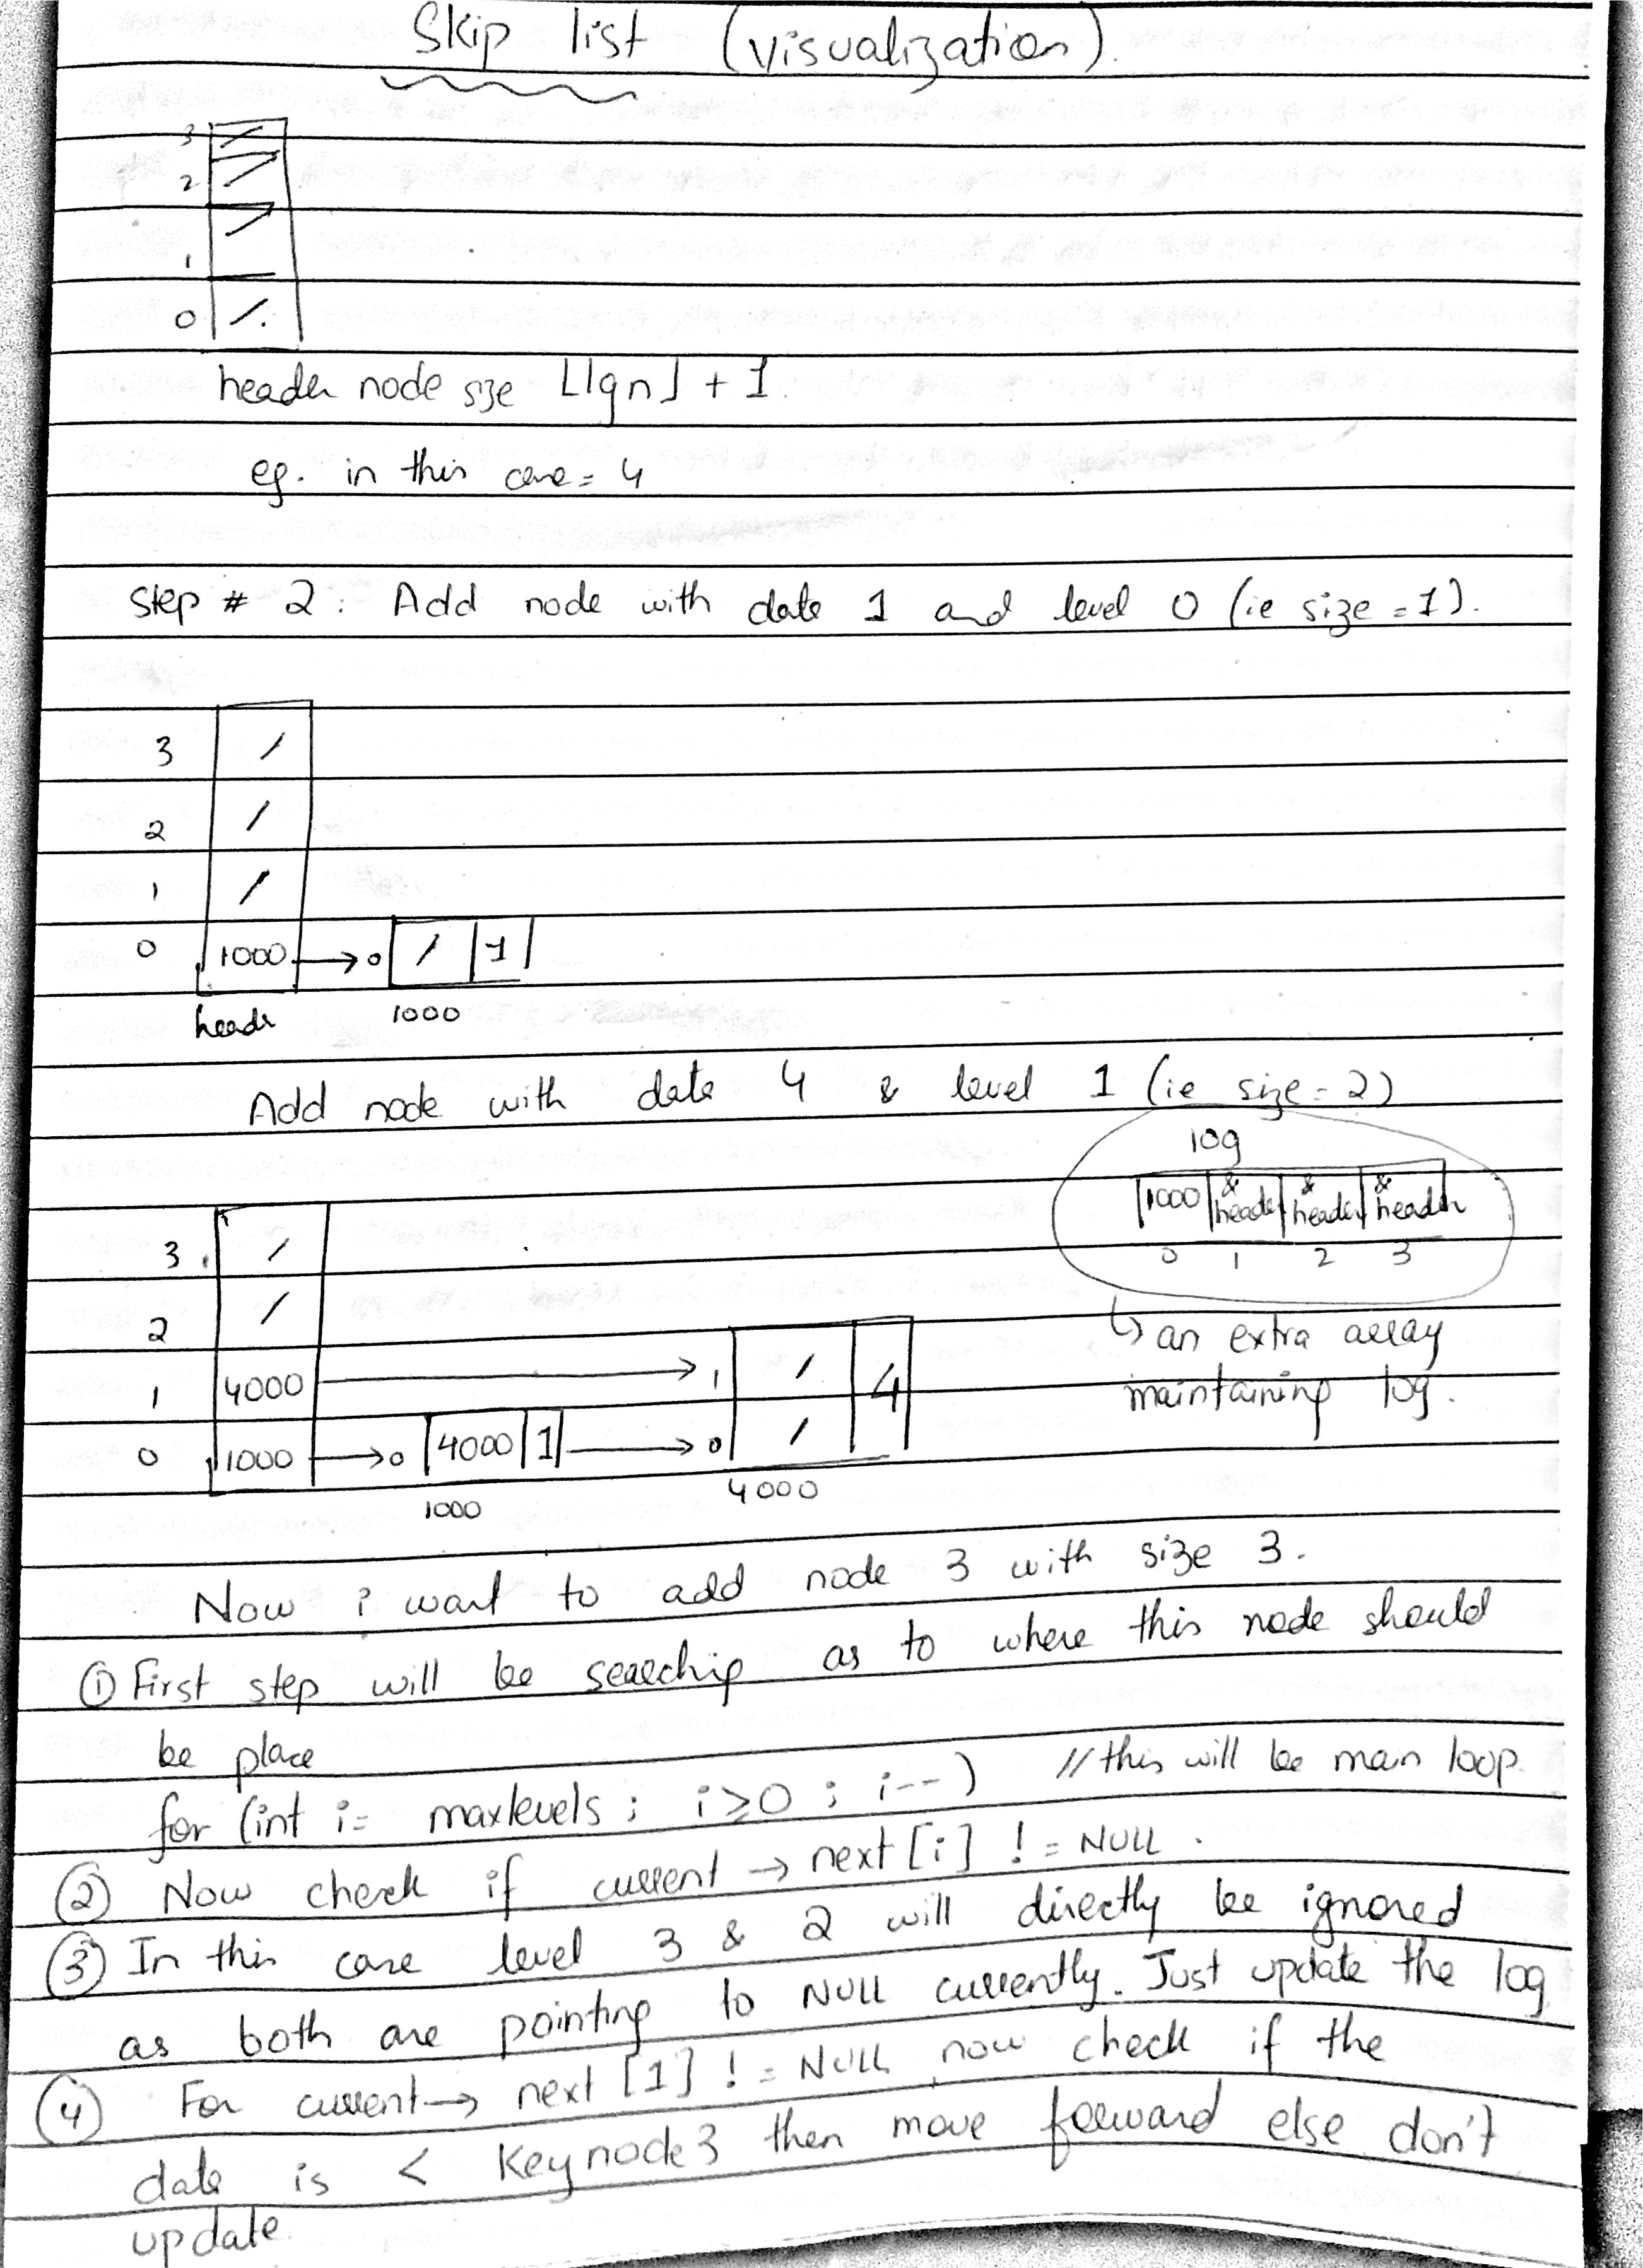 Skip list (visualization).
3
2
1
0
header node size ⌊lgn⌋ + 1
eg. in this case = 4
Step # 2: Add node with data 1 and level 0 (ie size = 1).
3
2
1
0 1000 → 0 / 1
header 1000
Add node with data 4 & level 1 (ie size = 2)
log
1000 & header & header & header
0 1 2 3
↳ an extra array
maintaining log.
3
2
1 4000 → 1 4
0 1000 → 0 4000 1 → 0
1000 4000
Now i want to add node 3 with size 3.
① First step will be searching as to where this node should
be place
for (int i = maxlevels ; i ≥ 0 ; i-- ) // this will be main loop
② Now check if current → next [i] ! = NULL .
③ In this case level 3 & 2 will directly be ignored
as both are pointing to NULL currently. Just update the log
④ For current → next [1] ! = NULL now check if the
data is < Key node 3 then move forward else don't
update